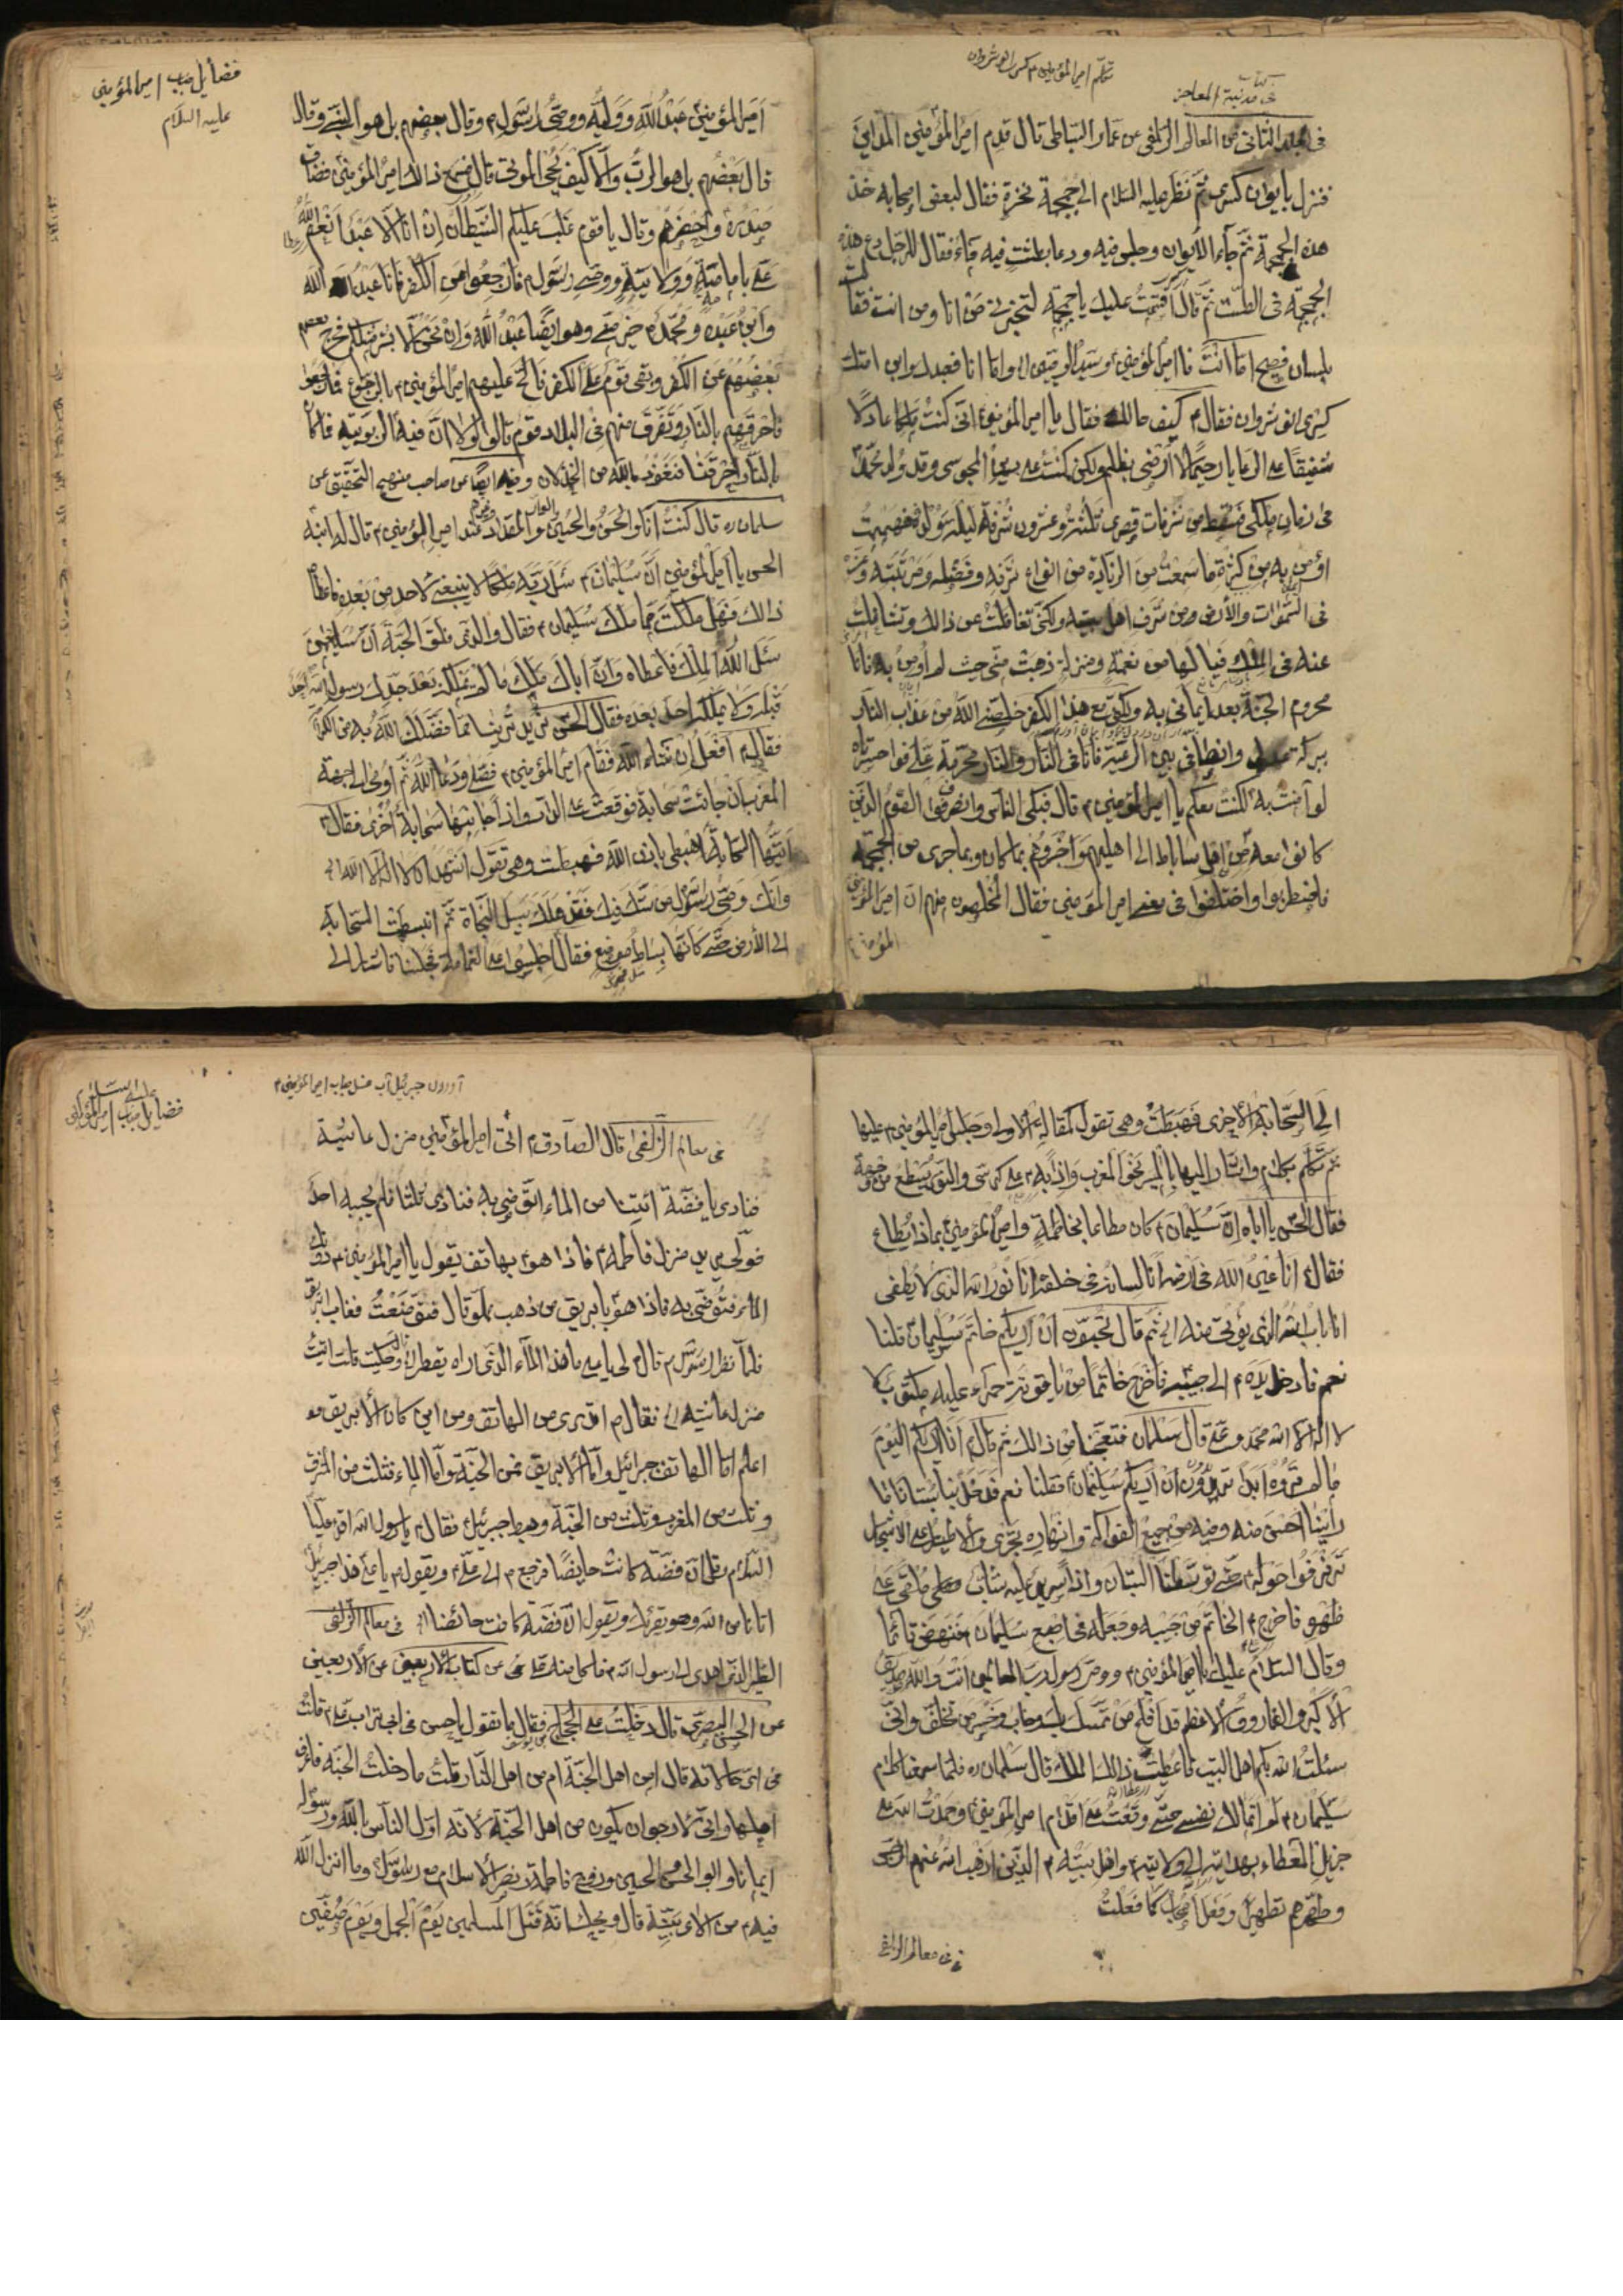 تكلم امير المؤمنين مع كسرى انوشروان
في مدينة المعاجز
في المجلد الثاني من المعالم الزلفى عن عمار الساباطي قال قدم امير المؤمنين المداين
فنزل بايوان كسرى ثم نظر عليه السلام الى جمجمة نخرة فقال لبعض اصحابه خذ
هذه الجمجمة ثم جاء الى الايوان وجلس فيه ودعا بطشت فيه ماء فقال للرجل دع هذه
الجمجمة في الطشت ثم قال اقسمت عليك يا جمجمة لتخبريني من انا ومن انت فقالت
بلسان فصيح اما انت فامير المؤمنين وسيد الوصيين واما انا فعبدك وابن امتك
كسرى انوشروان فقال كيف حالك فقال يا امير المؤمنين اني كنت ملكا عادلا
شفيقا على الرعايا رحيما لا ارضى بظلم ولكن كنت على دين المجوس وقد ولد محمد
في زمان ملكي فسقط من شرفات قصري ثلثة وعشرون شرفة ليلة ولد فهممت
اؤمن به من كثرة ما سمعت من الزيادة من انواع شرفه وفضله ومرتبته وعزه
في السموات والارض ومن شرف اهل بيته ولكني تغافلت عن ذلك وتشاغلت
عنه في الملك فيا لها من نعمة ومنزلة ذهبت مني حيث لم اومن به فانا
محروم الجنة بعدم ايماني به ولكني مع هذا الكفر خلصني الله من عذاب النار
ببركة عدلي وانصافي بين الرعية فانا في النار والنار محرمة علي فوا حسرتاه
لو آمنت به لكنت معكم يا امير المؤمنين قال فبكى الناس وانصرفوا القوم الذين
كانوا معه من اهل ساباط الى اهليهم واخبروهم بما كان وبما جرى من الجمجمة
فاضطربوا واختلفوا في معنى امير المؤمنين فقال المخلصون منهم ان امير المؤمنين
المؤمنين
فضايل جناب امير المؤمنين
عليه السلام
امير المؤمنين عبد الله ووليه ووصي رسوله وقال بعضهم بل هو النبي وقال
قال بعضهم بل هو الرب والا كيف يحيى الموتى قال فسمع ذلك امير المؤمنين فضاق
صدره واحضرهم وقال يا قوم غلب عليكم الشيطان ان انا الا عبد انعم الله
علي بامامته وولايته ووصي رسوله فارجعوا من الكفر فانا عبد الله
وابن عبده ومحمد خير مني وهو ايضا عبد الله وان نحن الا بشر مثلكم فخرج
بعضهم عن الكفر وبقي قوم على الكفر فالح عليهم امير المؤمنين بالرجوع فما رجعوا
فاحرقهم بالنار وتفرق منهم في البلاد قوم قالوا لولا ان فيه الربوبية فلما
بالنار احرقنا فنعوذ بالله من الخذلان وفيه ايضا عن صاحب منهج التحقيق عن
سلمان ره قال كنت انا والحسن والحسين والمقداد عند امير المؤمنين قال له ابنه
الحسن يا امير المؤمنين ان سليمان سئل ربه ملكا لا ينبغي لاحد من بعده فاعطاه
ذلك فهل ملكت مما ملك سليمان فقال والذي فلق الحبة ان سليمان
سئل الله الملك فاعطاه وان اباك ملك ما لم يملكه بعد جدك رسول الله احد
قبله ولا يملكه احد بعده فقال الحسن نريد ترينا مما فضلك الله به من الكرامة
فقال افعل ان شاء الله فقام امير المؤمنين فصلى ودعا الله ثم اومى الى جهة
المغرب فجائت سحابة فوقعت على الدار واذا جانبها سحابة اخرى فقال
ايتها السحابة اهبطي باذن الله فهبطت وهي تقول اشهد ان لا اله الا الله
وانك وصي رسول من شك فيك فقد هلك سبيل النجاة ثم انبسطت السحابة
الى الارض حتى كانها بساط موضوع فقال اجلسوا على الغمامة فجلسنا فاشار الى
الى السحابة الاخرى فهبطت وهي تقول كمقالة الاولى وجلس امير المؤمنين عليها
ثم تكلم بكلام واشار اليها بالمسير نحو المغرب واذا به على كرسي والنور يسطع من وجهه
فقال الحسن يا اباه ان سليمان كان مطاعا بخاتمه وامير المؤمنين بماذا يطاع
فقال انا عين الله في ارضه انا لسانه في خلقه انا نور الله الذي لا يطفى
انا باب الله الذي يؤتى منه الى ثم قال تحبون ان اريكم خاتم سليمان قلنا
نعم فادخل يده الى جيبه فاخرج خاتما من ياقوتة حمراء عليه مكتوب
لا اله الا الله محمد وعلي قال سلمان فتعجبنا من ذلك ثم قال انا اريكم اليوم
ما لم تروه ابدا تريدون ان اريكم سليمان فقلنا نعم فدخل بنا بستانا ما
راينا احسن منه وفيه من جميع الفواكه وانهاره تجري والاطيار على الاشجار
ترفرفوا حوله حتى توسطنا البستان واذا سرير عليه شاب ملقى على
ظهره فاخرج الخاتم من جيبه وجعله في اصبع سليمان فنهض قائما
وقال السلام عليك يا امير المؤمنين ووصي رسول رب العالمين انت والله الصديق
الاكبر والفاروق الاعظم قد افلح من تمسك بك وخاب وخسر من تخلف واني
سئلت الله بكم اهل البيت فاعطيت ذلك الملك قال سلمان ره فلما سمعنا كلام
سليمان لم اتمالك نفسي حتى وقعت على اقدام امير المؤمنين وحمدت الله على
جزيل العطاء بهدايته الى ولاية اهل بيته الذين اذهب الله عنهم الرجس
وطهرهم تطهيرا وفعل اصحابي كما فعلت
في معالم الزلفى
آوردن جبرئيل آب غسل جناب امير المؤمنين
عليه السلام
فضايل جناب امير المؤمنين
في معالم الزلفى قال الصادق اتى امير المؤمنين منزل عائشة
فنادى يا فضة ائتينا من الماء اتوضى به فنادى ثلثا فلم يجبه احد
فولى يريد منزل فاطمة فاذا هو بهاتف يقول يا امير المؤمنين دونك
الماء فتوضى به فاذا هو بابريق من ذهب مملو قال فتوضئت فغاب الابريق
فلما نظر الرسول قال لي يا علي ما هذا الماء الذي اراه يقطر قلت اتيت
منزل عائشة الى فقال م اتدري من الهاتف ومن اين كان الابريق
اعلم اما الهاتف جبرائيل واما الابريق فمن الجنة واما الماء فثلث من المشرق
وثلث من المغرب وثلث من الجنة وهبط جبرئيل فقال يا رسول الله اقرء عليا
السلام وقل ان فضة كانت حايضا فرجع الى علي ويقول يا علي هذا جبرئيل
اتانا من الله وهو يقرئك ويقول ان فضة كانت حائضا الى في معالم الزلفى
الطير الذي اهدى الى رسول الله فاكل منه علي عن كتاب الاربعين عن الاربعين
عن الحسن البصري قال دخلت على الحجاج فقال ما تقول يا حسن في ابي تراب علي قلت
في اي حالاته قال امن اهل الجنة ام من اهل النار قلت ما دخلت الجنة فاعرف
اهلها واني لارجو ان يكون من اهل الجنة لانه اول الناس بالله ورسوله
ايمانا وابو الحسن والحسين وزوج فاطمة ونصر الاسلام مع رسول وما انزل الله
فيه من الآي بينة قال ويحك انه قتل المسلمين يوم الجمل ويوم صفين